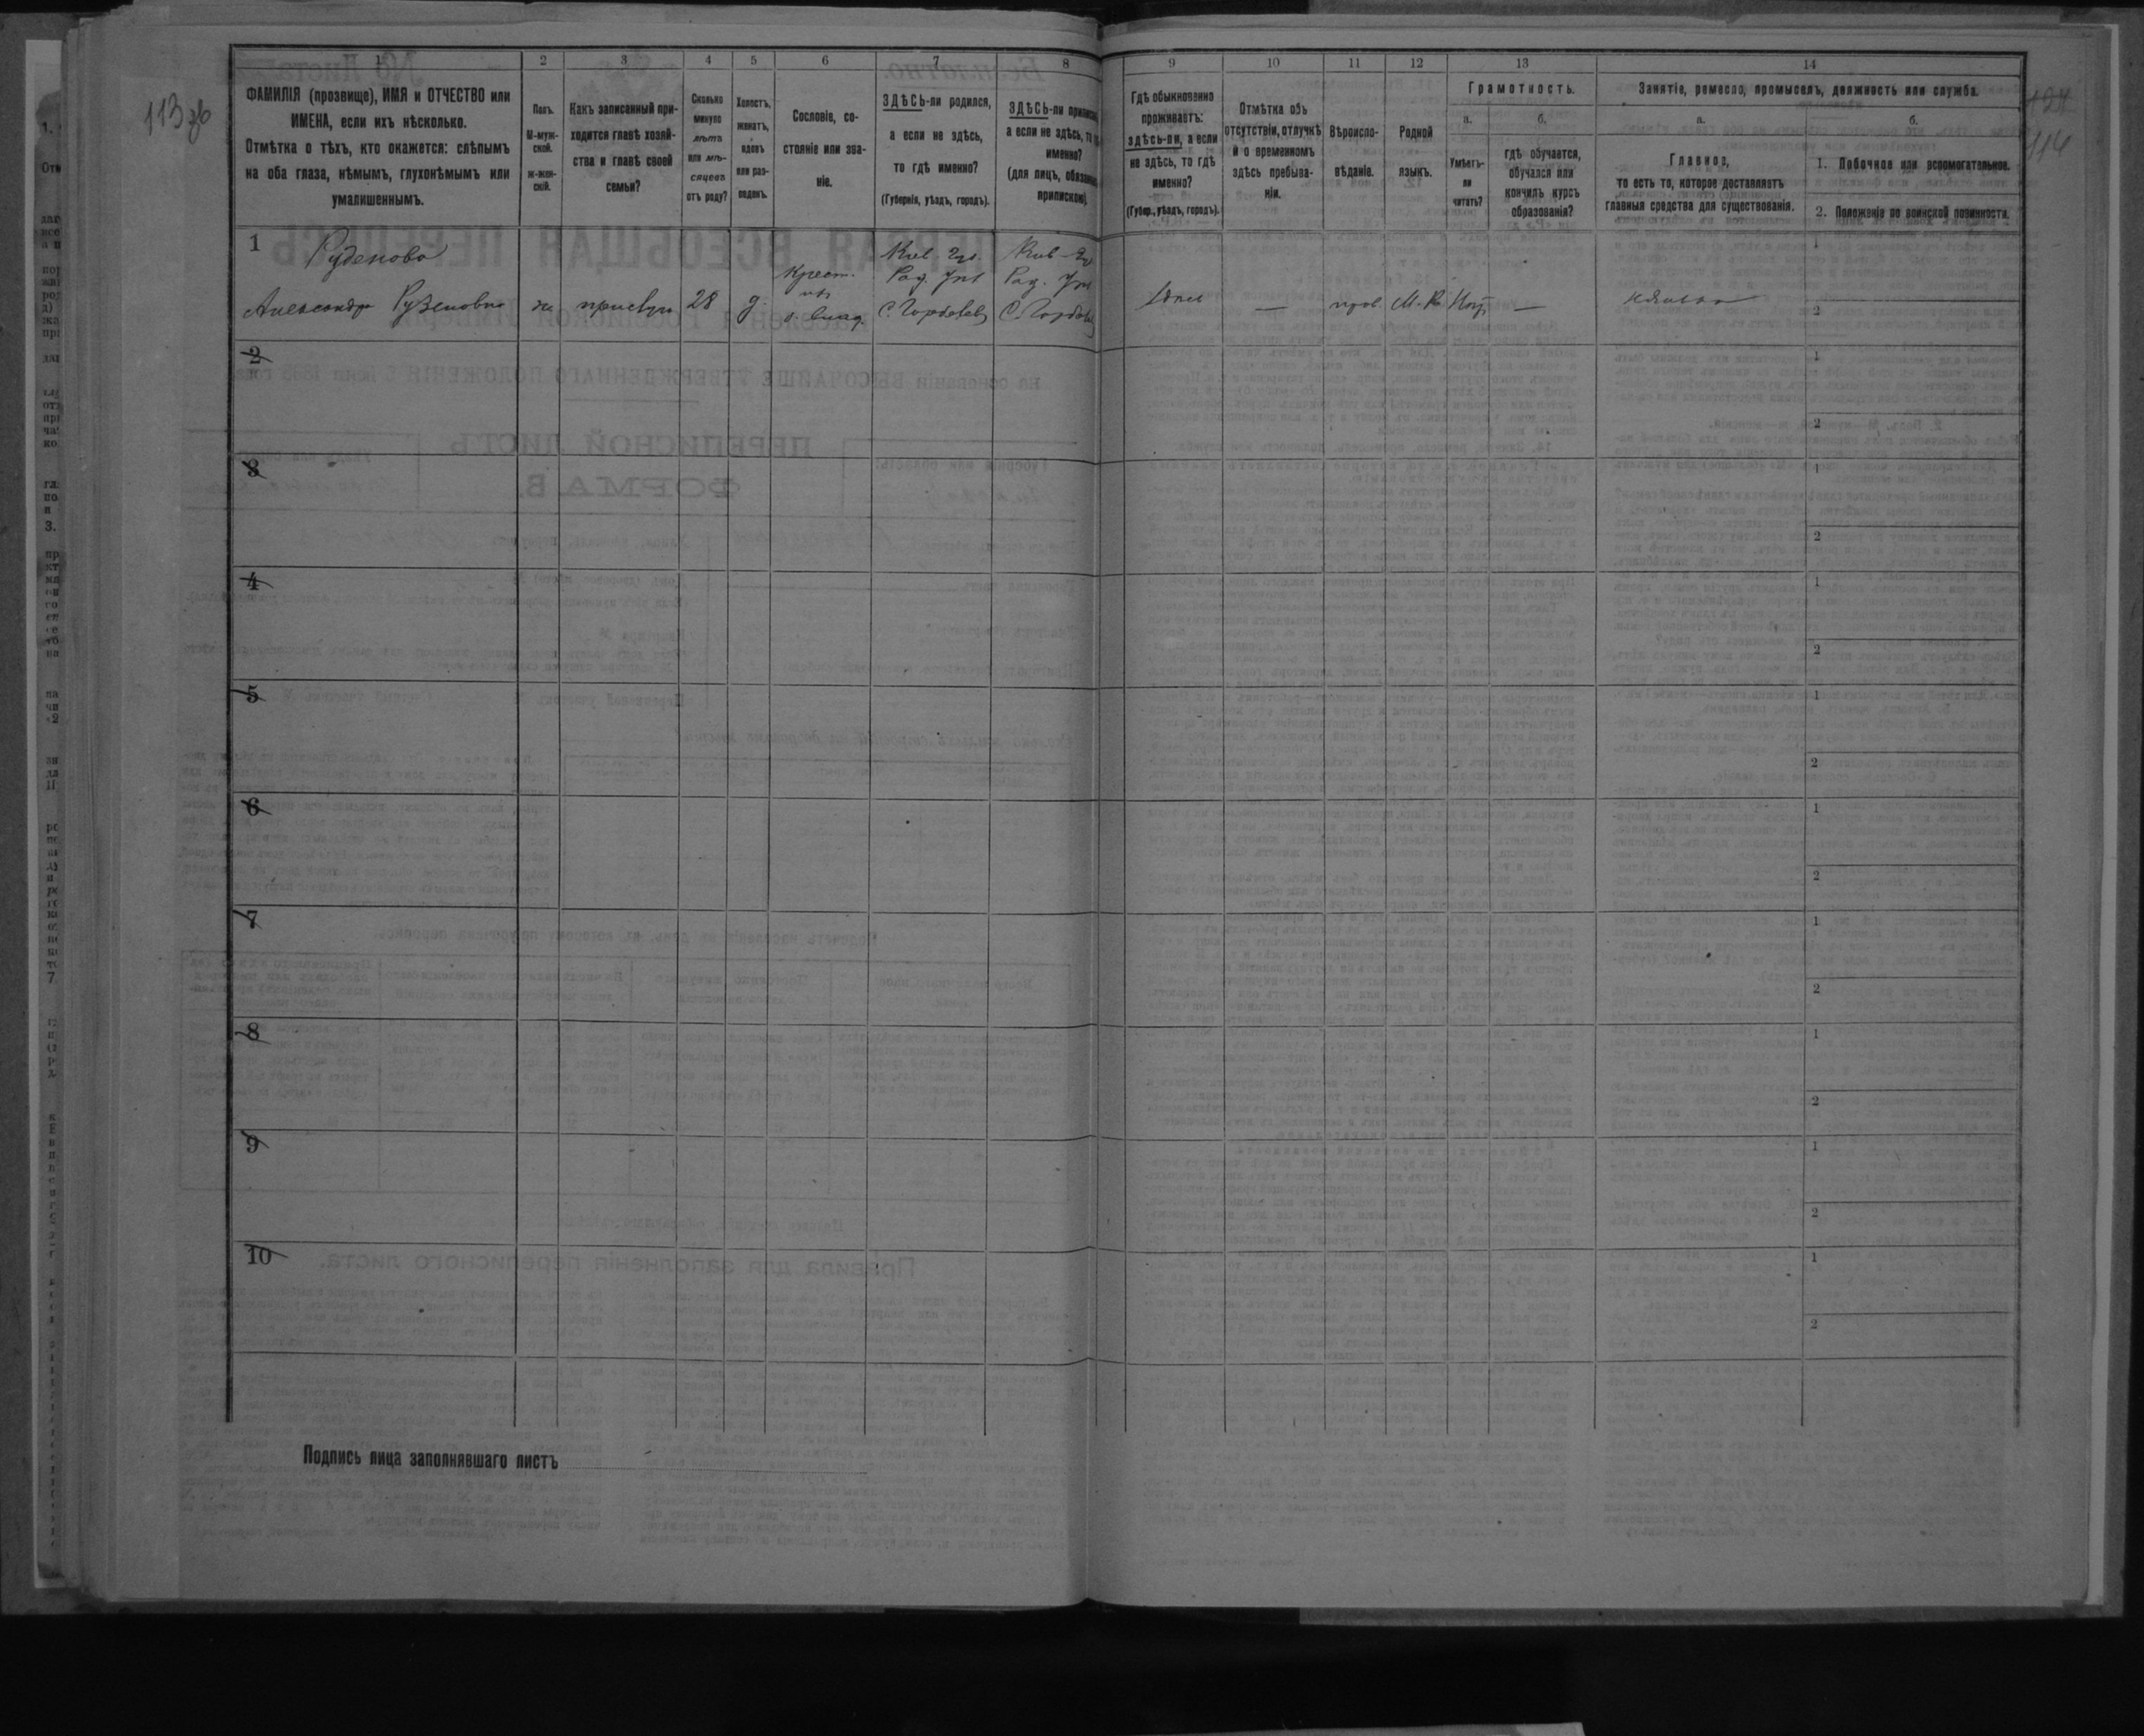 113 об
124
114
1
2
3
4
5
6
7
8
9
10
11
12
13
14
ФАМИЛІЯ (прозвище), ИМЯ и ОТЧЕСТВО или
ИМЕНА, если ихъ нѣсколько.
Отмѣтка о тѣхъ, кто окажется: слѣпымъ
на оба глаза, нѣмымъ, глухонѣмымъ или
умалишеннымъ.
Полъ.
М-муж-
ской.
ж-жен-
скій.
Какъ записанный при-
ходится главѣ хозяй-
ства и главѣ своей
семьи?
Сколько
минуло
лѣтъ
или мѣ-
сяцевъ
отъ роду?
Холостъ,
женатъ,
вдовъ
или раз-
веденъ.
Сословіе, со-
стояніе или зва-
ніе.
ЗДѢСЬ-ли родился,
а если не здѣсь,
то гдѣ именно?
(Губернія, уѣздъ, городъ).
ЗДѢСЬ-ли
а если не здѣсь, то
именно?
(для лицъ,
припискою).
Гдѣ обыкновенно
проживаетъ:
здѣсь-ли, а если
не здѣсь, то гдѣ
именно?
(Губер., уѣздъ, городъ).
Отмѣтка объ
отсутствіи, отлучкѣ
и о временномъ
здѣсь пребыва-
ніи.
Вѣроиспо-
вѣданіе.
Родной
языкъ.
Грамотность.
а.
Умѣетъ-
ли
читать?
б.
гдѣ обучается,
обучался или
кончилъ курсъ
образованія?
Занятіе, ремесло, промыселъ, должность или служба.
а.
Главное,
то есть то, которое доставляетъ
главныя средства для существованія.
б.
1. Побочное или вспомогательное.
2. Положеніе по воинской повинности.
1
Руденова
ж. 28 д.
Крест.
изъ
б. влад.
Кіев. губ.
Рад. Уѣз
Кіев.
Рад. Уѣз
здѣсь — прав. М. Р. Нѣтъ —
1
2
2
1
2
3
1
2
4
1
2
5
1
2
6
1
2
7
1
2
8
1
2
9
1
2
10
1
2
Подпись лица заполнявшаго листъ